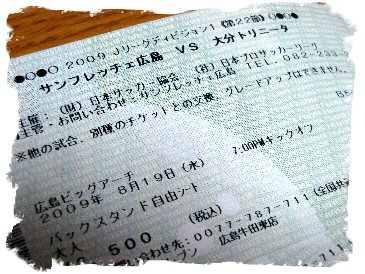 ●○●○ 2009 Jリーグディビジョン1《第22節》○●○●
サンフレッチェ広島 VS 大分トリニータ
主催:(財)日本サッカー協会 (社)日本プロサッカーリーグ
主管・お問い合わせ:サンフレッチェ広島 TEL: 082-233-
※他の試合、別種のチケットとの交換、グレードアップはできません。
広島ビッグアーチ
2009年 8月19日(水) 7:00PMキックオフ
バックスタンド自由シート
大人 500 (税込)
問い合わせ先:0077-787-711(全国共
ブン 広島牛田東店